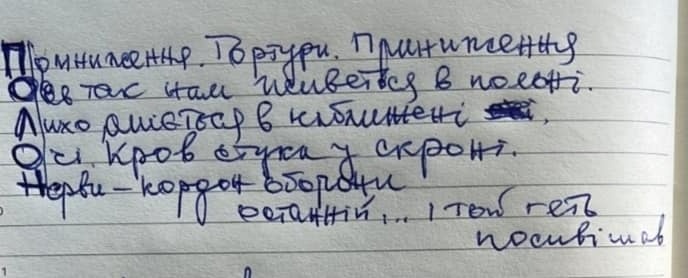 Помниження. Тортури. Приниження
Ось так нам живеться в полоні.
Лихо сміється в наближені
Очі. Кров стука у скроні.
Нерви – кордон оборони
останній... І той геть
посивішав